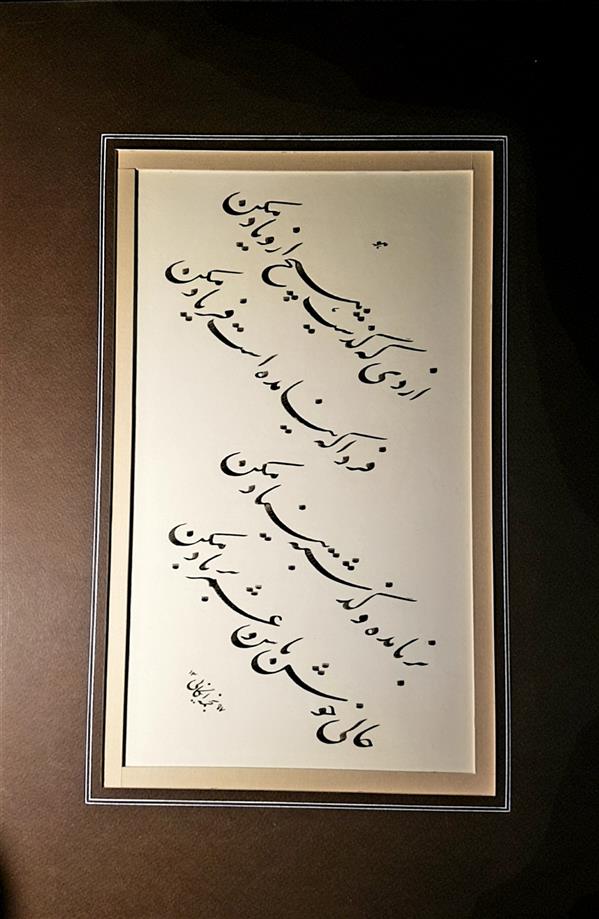 هو
از دی که گذشت هیچ ازو یاد مکن
فردا که نیامده است فریاد مکن
بر نامده و گذشته بنیاد مکن
حالی خوش باش و عمر بر باد مکن